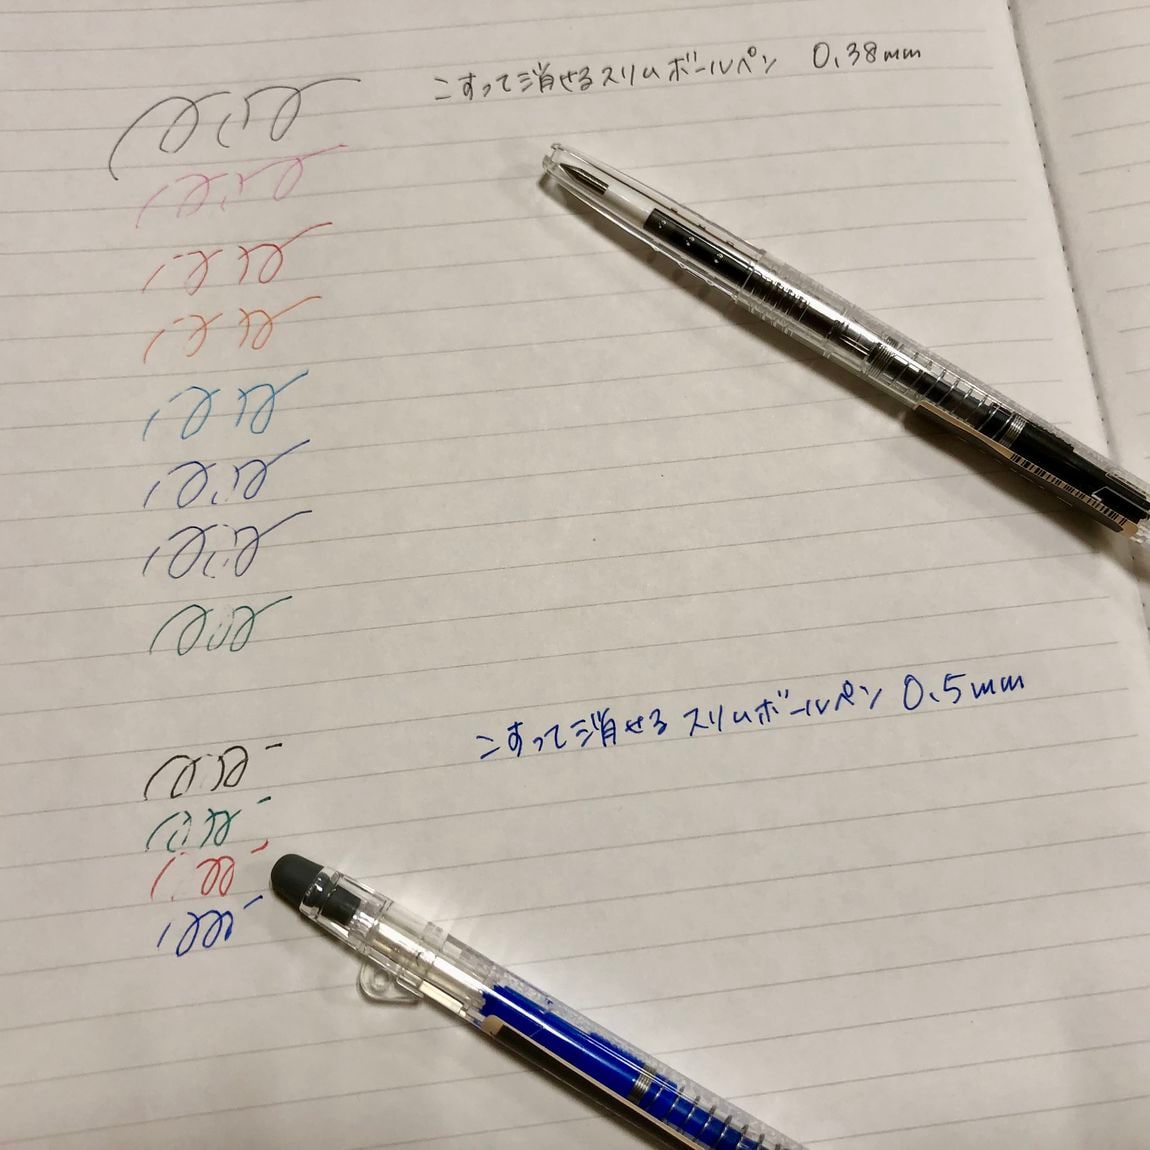 こすって消せるスリムボールペン 0.38mm
こすって消せるスリムボールペン 0.5mm